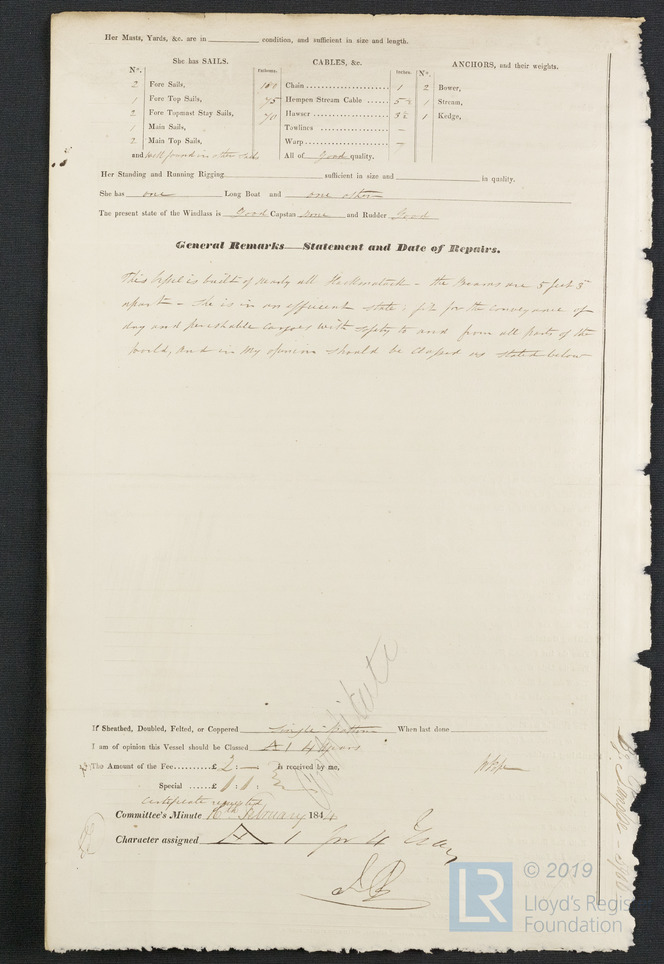 Her Masts, Yards, &c. are in condition, and sufficient in size and length.
She has SAILS.
CABLES, &c.
ANCHORS, and their weights.
Nº. Fathoms. Inches. Nº.
2 Fore Sails, 100 Chain 1 2 Bower,
1 Fore Top Sails, 75 Hempen Stream Cable 5½ 1 Stream,
2 Fore Topmast Stay Sails, 70 Hawser 3½ 1 Kedge,
1 Main Sails, Towlines –
2 Main Top Sails, Warp –
and well found in other sails All of Good quality.
Her Standing and Running Rigging sufficient in size and in quality.
She has one Long Boat and one other
The present state of the Windlass is Good Capstan none and Rudder Good
General Remarks—Statement and Date of Repairs.
This Vessel is built of nearly all Hackmatack – the Beams are 5 feet 3"
apart – She is in an efficient state; fit for the conveyance of
dry and perishable cargoes with safety to and from all parts of the
World, and in my opinion should be Classed as stated below
If Sheathed, Doubled, Felted, or Coppered Single Bottom When last done
I am of opinion this Vessel should be Classed A 1 4 Years
The Amount of the Fee......£ 2 : – : is received by me,
Special ......£ 1 : 1 :
Certificate requested
Committee's Minute 16th February 1844
Character assigned A 1 for 4 Years
© 2019
LR Lloyd's Register
Foundation